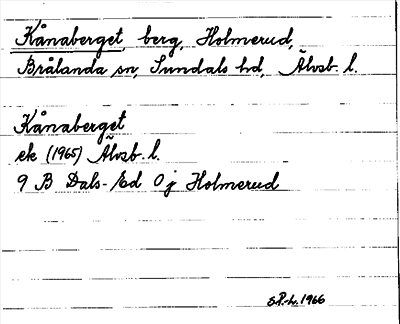 Kånaberget, berg, Holmerud,
Brålanda sn, Sundals hd, Älvsb. l.
Kånaberget
ek (1965) Älvsb. l.
9 B Dals-Ed 0 j Holmerud
S.P.-L. 1966